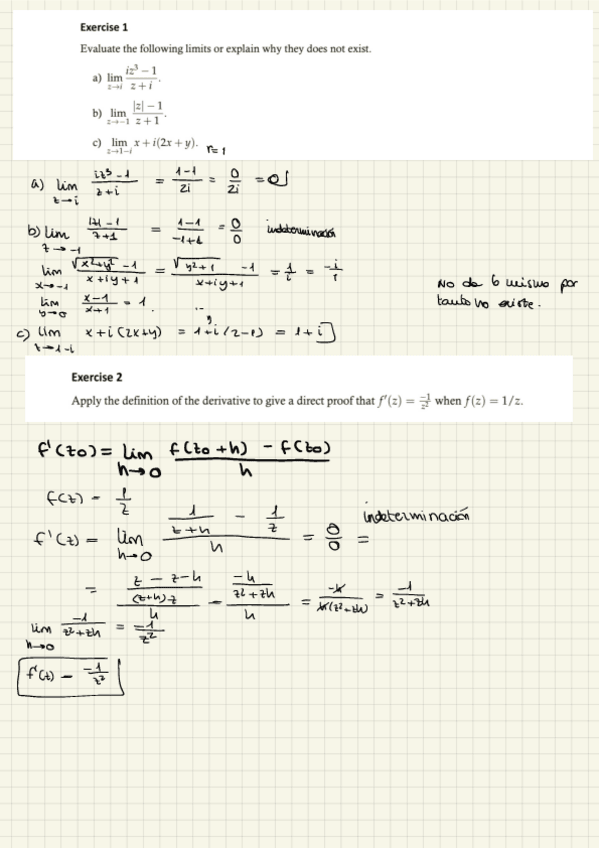 Exercise 1
Evaluate the following limits or explain why they does not exist.
a) lim z→i (iz³ − 1)/(z + i).
b) lim z→−1 (|z| − 1)/(z + 1).
c) lim z→1−i x + i(2x + y).
n=1
a) lim z→i (iz³ − 1)/(z + i) = (1 − 1)/2i = 0/2i = 0
b) lim z→−1 (|z| − 1)/(z + 1) = (1 − 1)/(−1 + 1) = 0/0 indeterminación
lim x→−1 (√(x² + y²) − 1)/(x + iy + 1) = (√(y² + 1) − 1)/(x + iy + 1) = 1/i = −i/1
No da lo mismo por
lim y→0 (x − 1)/(x + 1) = 1
tanto no existe.
c) lim z→1−i x + i(2x + y) = 1 + i(2 − 1) = 1 + i
Exercise 2
Apply the definition of the derivative to give a direct proof that f′(z) = −1/z² when f(z) = 1/z.
f'(z0) = lim h→0 (f(z0 + h) − f(z0))/h
f(z) = 1/z
indeterminación
f'(z) = lim h→0 (1/(z + h) − 1/z)/h = 0/0 =
= ((z − z − h)/((z + h)·z))/h = (−h/(z² + zh))/h = −h/(h(z² + zh)) = −1/(z² + zh)
lim h→0 −1/(z² + zh) = −1/z²
f'(z) = −1/z²